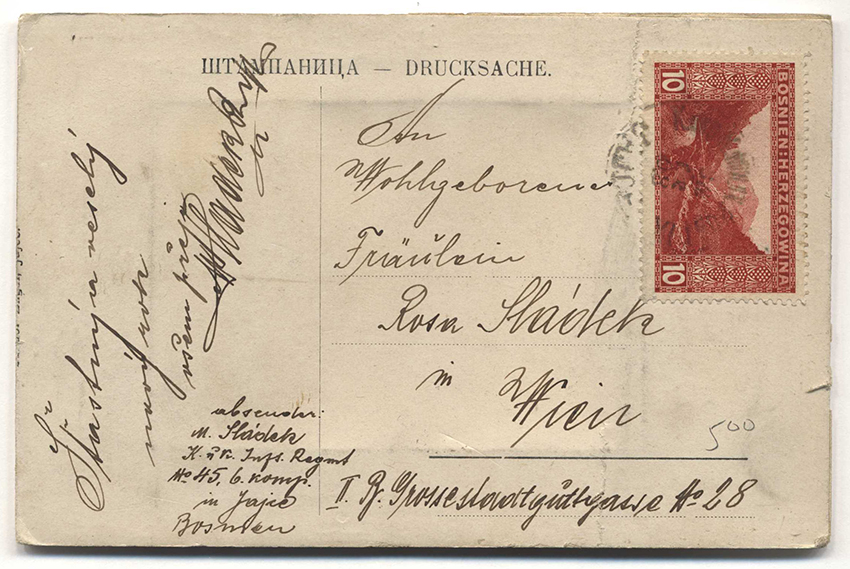 ШТАМПАНИЦА — DRUCKSACHE.
An
Wohlgeborene
Fräulein
Rosa Sládek
in
Wien
II. B. Grossestadtgutgasse No 28
500
10 BOSNIEN:HERZEGOWINA 10
Šťastný a veselý
nový rok
všem přeje
absender:
M. Sládek
K. u k. Inft. Regmt
No 45, 6. komp.
in Jajce
Bosnien